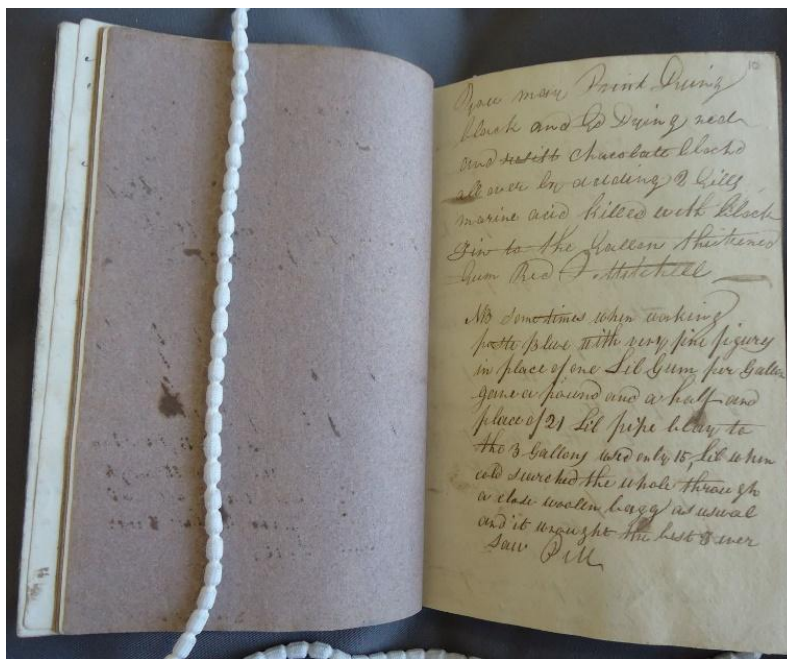 10
you may Print Dying
black and Go Dying red
and resist chacolate blochd
all over by adding 2 Gills
marine acid killed with block
Tin to the Gallon thickened
Gum Red J. Mitchell
NB sometimes when working
paste blue with very fine figury
in place of one Lib Gum per Gallon
gave a pound and a half and
place of 21 Lib pipe blay to
the 3 Gallons used only 15, Lib when
cold surched the whole through
a close woolen bagg as usual
and it wrought the best I ever
saw